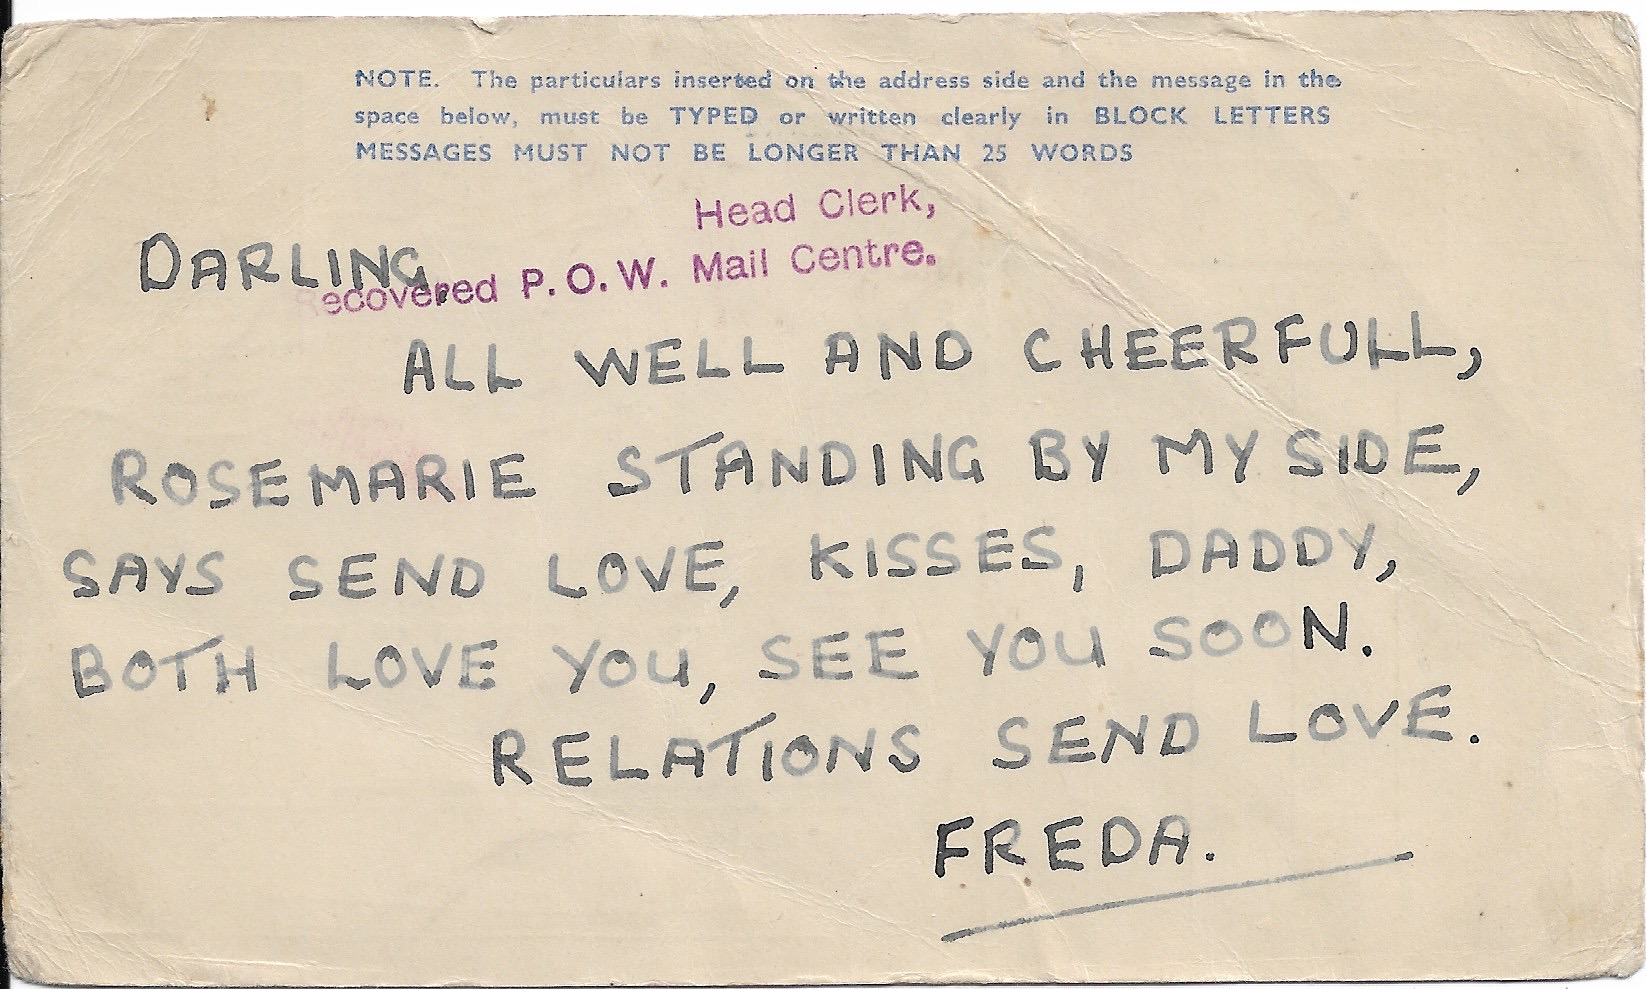 NOTE. The particulars inserted on the address side and the message in the
space below, must be TYPED or written clearly in BLOCK LETTERS
MESSAGES MUST NOT BE LONGER THAN 25 WORDS
Head Clerk,
Recovered P.O.W. Mail Centre.
DARLING,
ALL WELL AND CHEERFULL,
ROSEMARIE STANDING BY MY SIDE,
SAYS SEND LOVE, KISSES, DADDY,
BOTH LOVE YOU, SEE YOU SOON.
RELATIONS SEND LOVE.
FREDA.